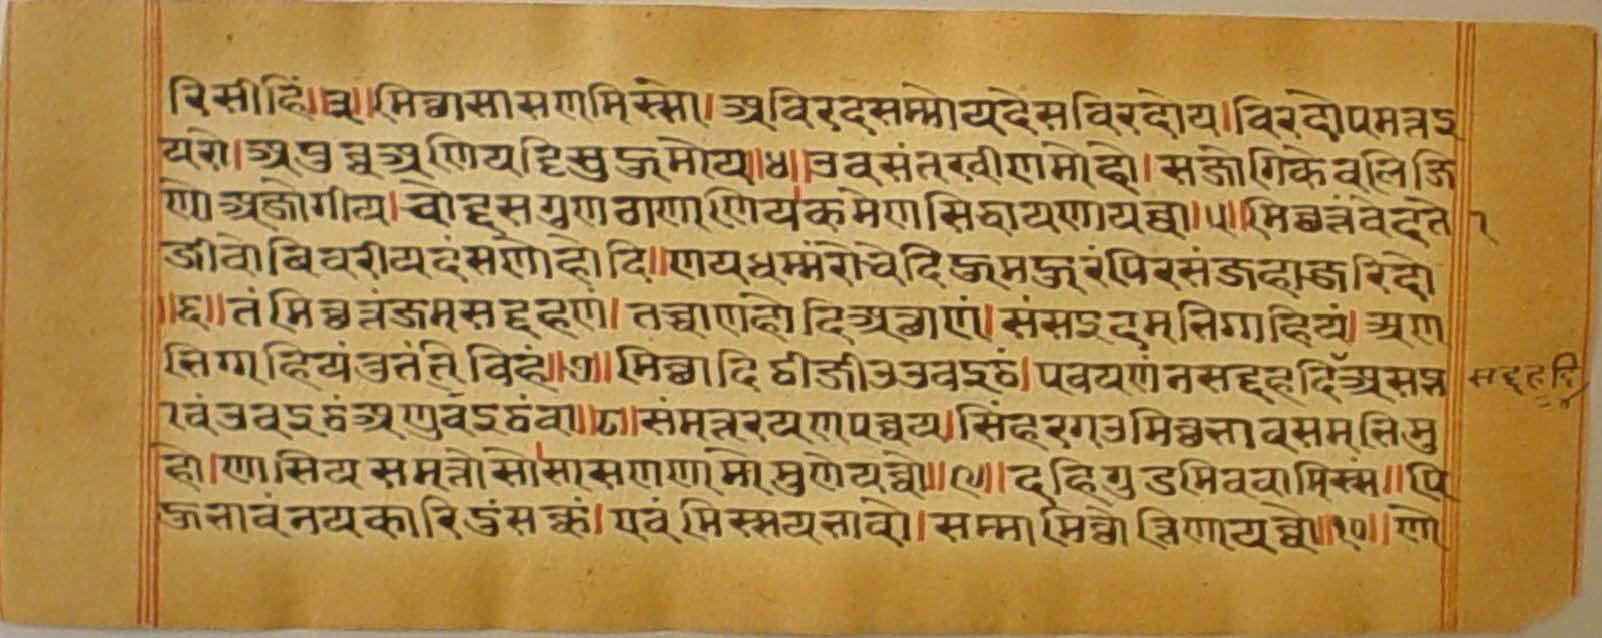 रिसीहिं॥३॥मिच्छासासणमिस्सो।अविरदसम्मोयदेसविरदोय।विरदोपमत्तइ
यरो।अपुव्वअणियट्टिसुहुमोय॥४॥उवसंतखीणमोहो।सजोगिकेवलिजि
णोअजोगीय।चोद्दसगुणठाणाणियकमेणसिद्धायणायव्वा॥५॥मिच्छत्तंवेदंतो
जीवोविवरीयदंसणोहोदि॥णयधम्मंरोचेदिहुमहुरंपिरसंजहाजरिदो
॥६॥तंमिच्छत्तंजमसद्दहणं।तच्चाणहोदिअत्थाणं।संसइदमभिग्गहियं।अण
भिग्गहियंतुतंतिविहं॥७॥मिच्छादिठीजीउउवइठं।पवयणंनसद्दहदि।असभ
ावंउवइठंअणुवइठंवा॥८॥संमत्तरयणपव्वय।सिहरगउमिच्छभावसमभिमु
हो।णासियसमत्तोसोसासणणामोमुणेयव्वो॥९॥दहिगुडमिववामिस्सं॥पि
हुभावंनयकारिउंसक्कं।एवंमिस्सयभावो।सम्मामिच्छोत्तिणायव्वो॥१०॥णो
सद्दहदि